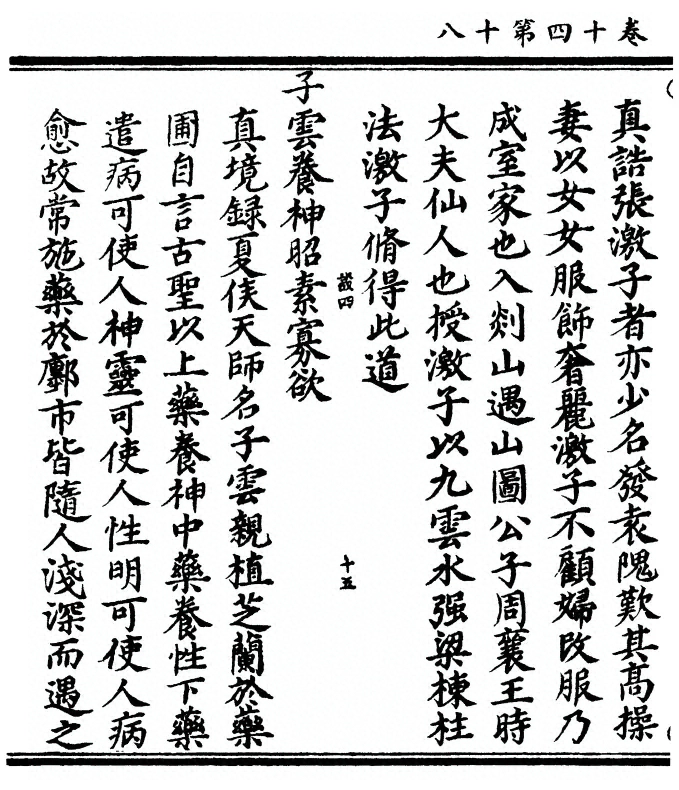 卷十四第十八
真誥張激子者亦少名發袁隗歎其高操
妻以女女服飾奢麗激子不顧婦改服乃
成室家也入剡山遇山圖公子周襄王時
大夫仙人也授激子以九雲水强梁棟柱
法激子脩得此道
設四
十五
子雲養神昭素寡欲
真境録夏侯天師名子雲親植芝蘭於藥
圃自言古聖以上藥養神中藥養性下藥
遣病可使人神靈可使人性明可使人病
愈故常施藥於鄽市皆隨人淺深而遇之